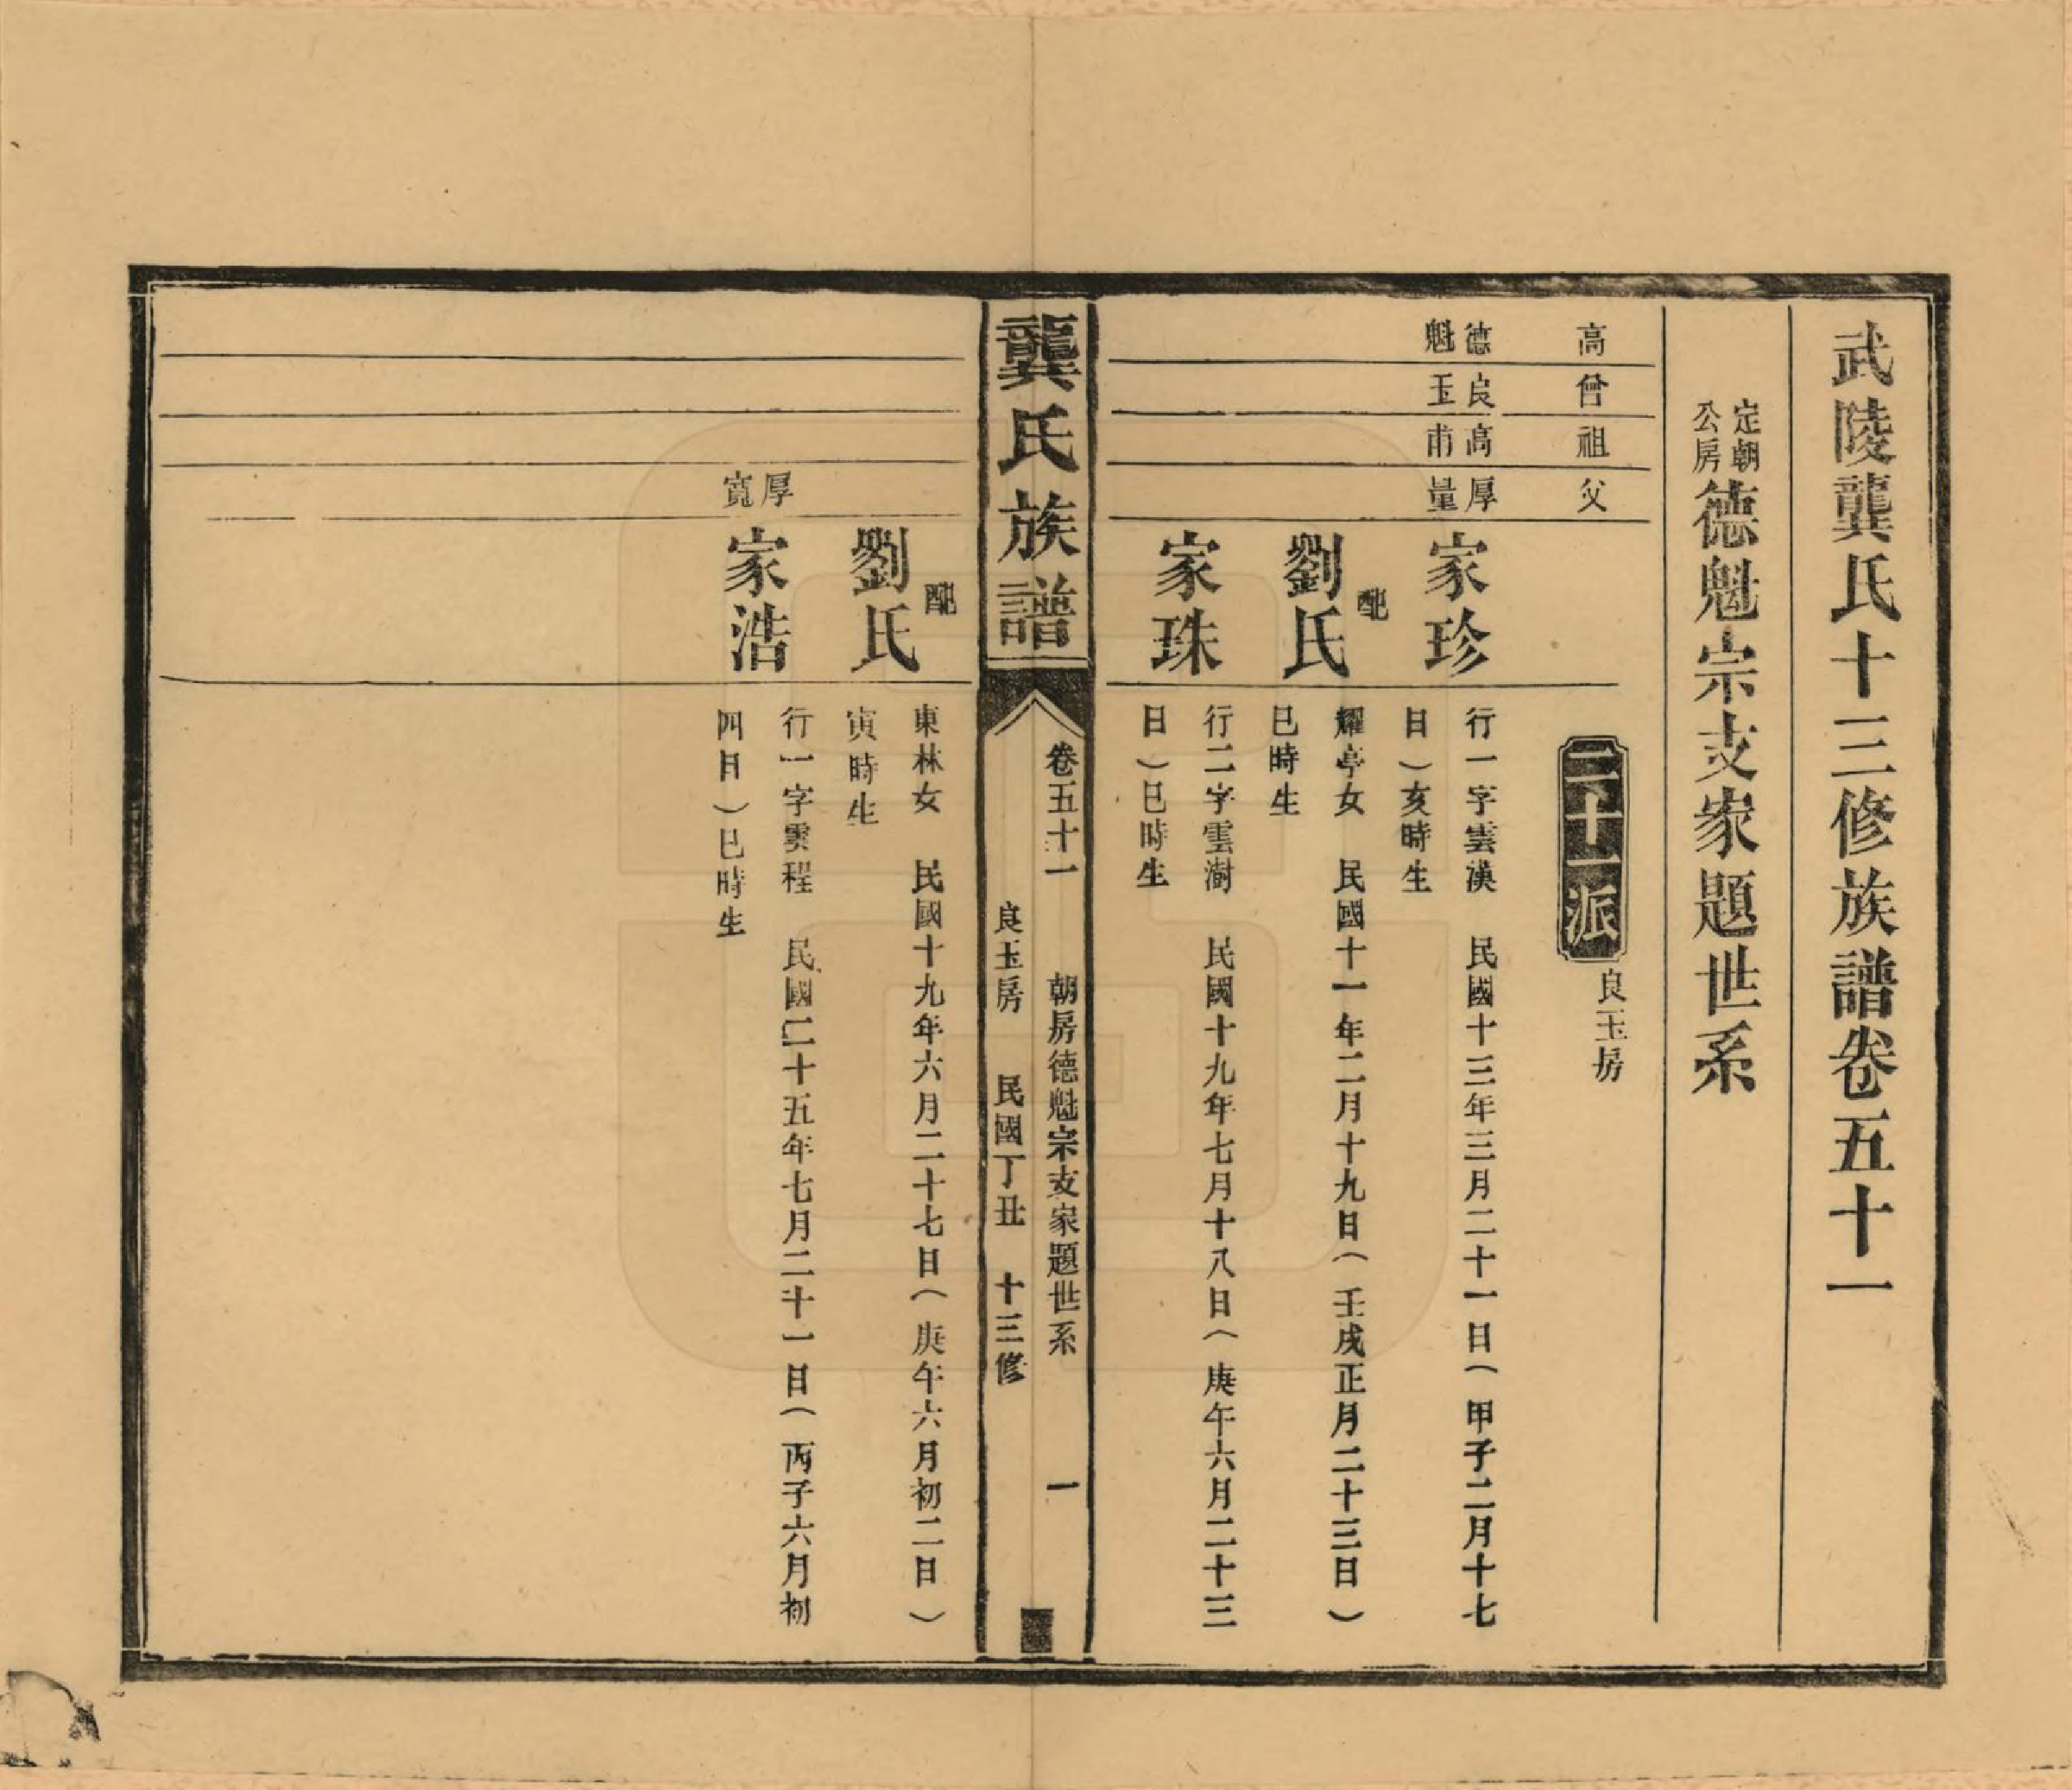 武陵龔氏十三修族譜卷五十一
定朝
公房
德魁宗支家題世系
高
曾
祖
父
二十一派
良玉房
德魁
良玉
高甫
厚量
家珍
行一字雲漢　民國十三年三月二十一日（甲子二月十七
日）亥時生
配
劉氏
耀亭女　民國十一年二月十九日（壬戌正月二十三日）
巳時生
家珠
行二字雲澍　民國十九年七月十八日（庚午六月二十三
日）巳時生
龔氏族譜
卷五十一　朝房德魁宗支家題世系　一
良玉房　民國丁丑　十三修
配
劉氏
東林女　民國十九年六月二十七日（庚午六月初二日）
寅時生
厚寬
家浩
行一字雲程　民國二十五年七月二十一日（丙子六月初
四日）巳時生